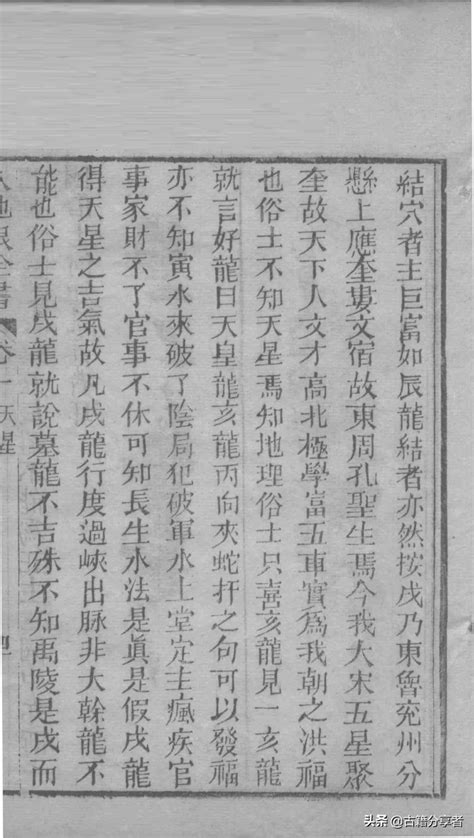 結穴者主巨富如辰龍結者亦然按戌乃東魯兖州分
懸上應奎婁文宿故東周孔聖生焉今我大宋五星聚
奎故天下人文才高北極學富五車實為我朝之洪福
也俗士不知天星焉知地理俗士只喜亥龍見一亥龍
就言好龍曰天皇龍亥龍丙向夾蛇扦之句可以發福
亦不知寅水來破了陰局犯破軍水上堂定主瘋疾官
事家財不了官事不休可知長生水法是真是假戌龍
得天星之吉氣故凡戌龍行度過峽出脉非大榦龍不
能也俗士見戌龍就說墓龍不吉殊不知禹陵是戌而
全書 卷一天星
头条 @古籍分享者